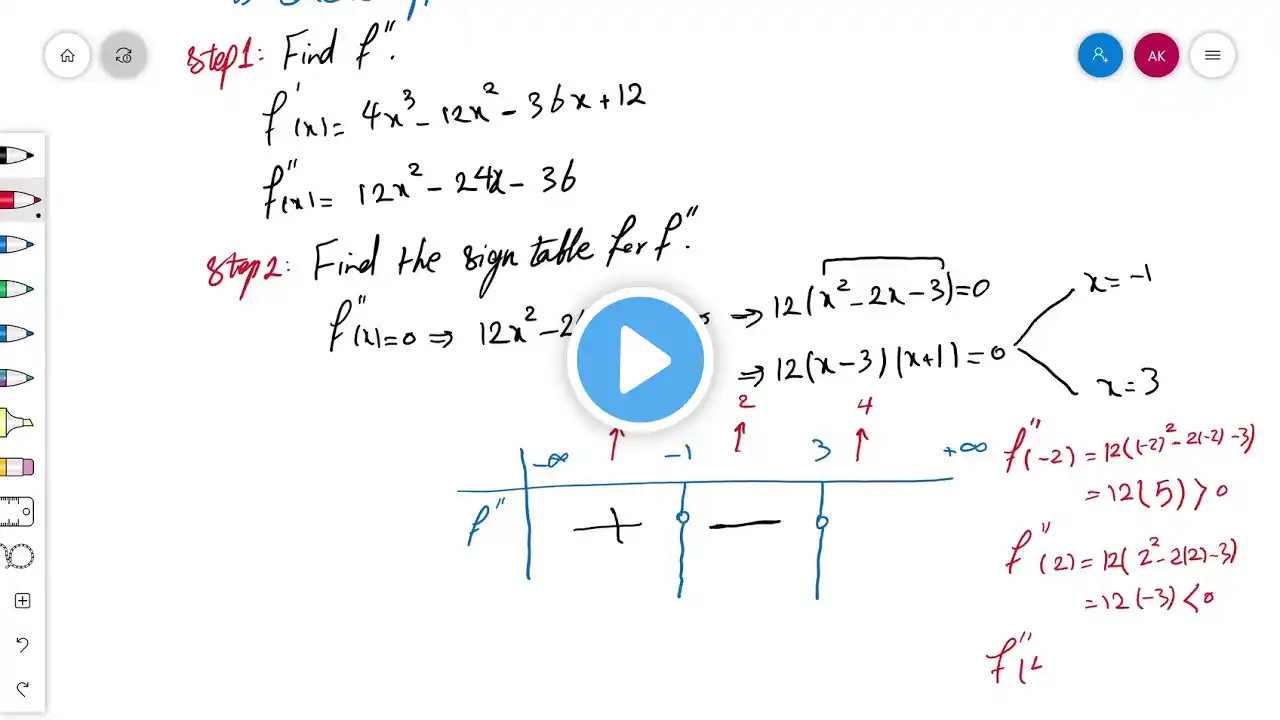 AK
step1: Find f''.
f'(x) = 4x³ - 12x² - 36x + 12
f''(x) = 12x² - 24x - 36
step2: Find the sign table for f''.
f''(x) = 0 ⇒ 12x² - 2
⇒ 12(x² - 2x - 3) = 0
⇒ 12(x - 3)(x + 1) = 0
x = -1
x = 3
2 4
-∞ -1 3 +∞
f'' + —
f''(-2) = 12((-2)² - 2(-2) - 3)
= 12(5) > 0
f''(2) = 12(2² - 2(2) - 3)
= 12(-3) < 0
f''(